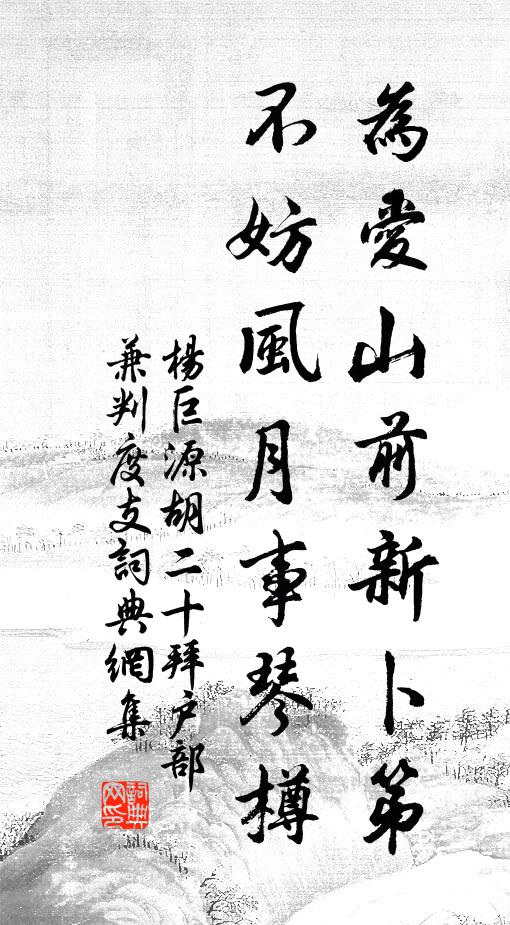 為愛山前新卜第
不妨風月事琴樽
楊巨源胡二十拜户部
兼判度支詞典網集
詞典
网印